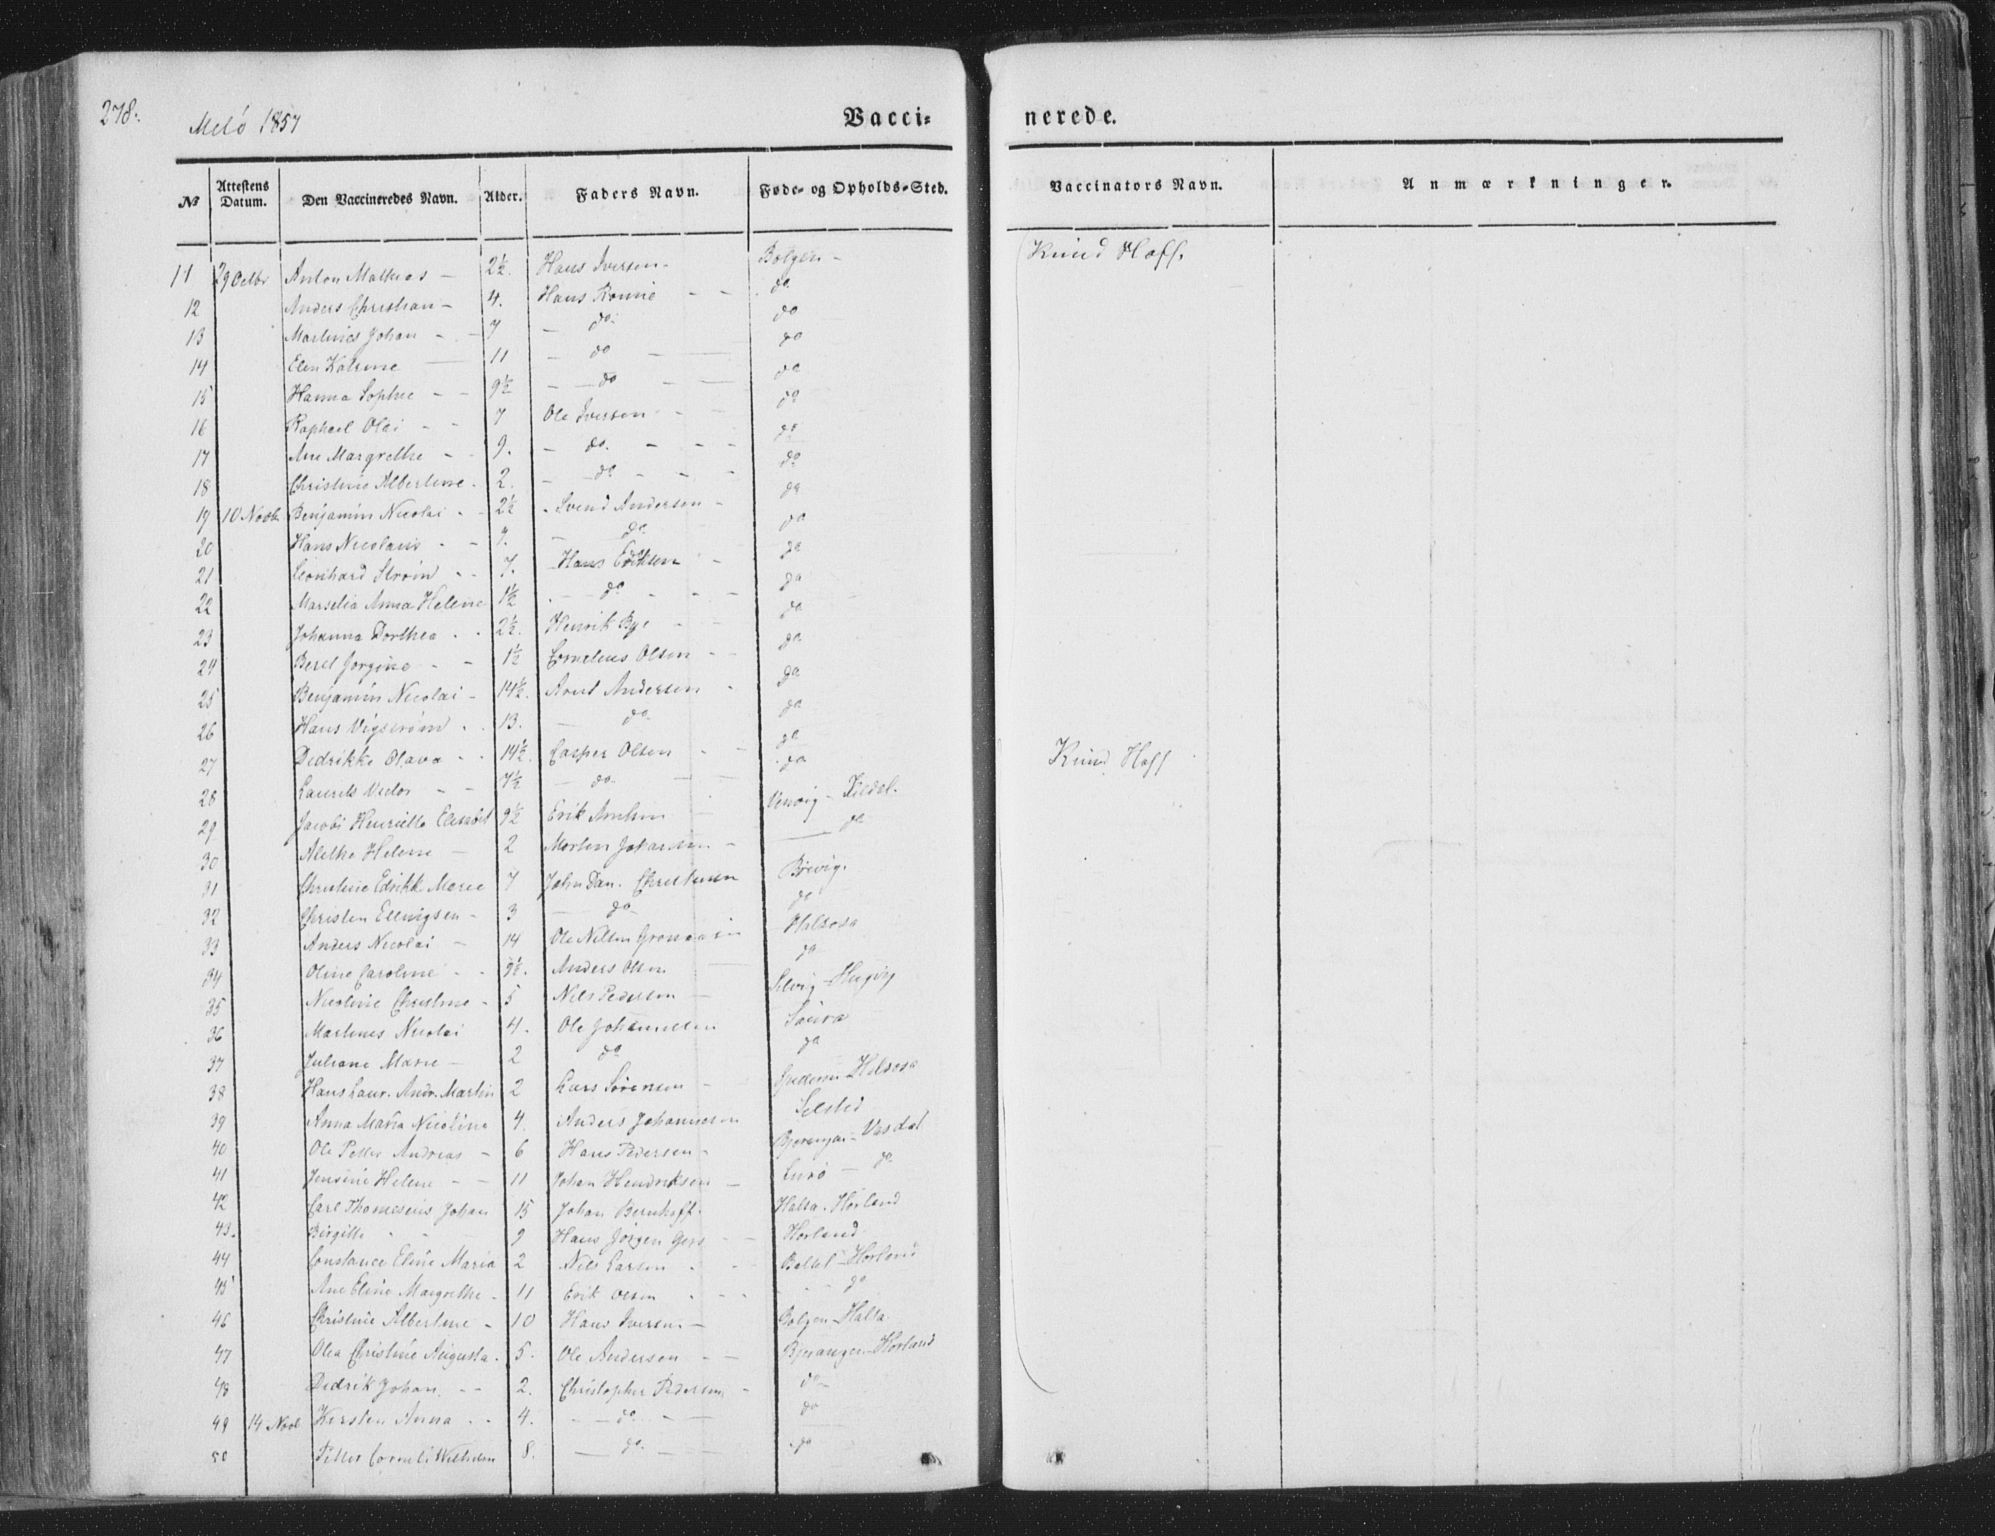 278.
Melö 1857
Vacci- nerede.
No Attestens Datum. Den Vaccineredes Navn. Alder. Faders Navn. Føde- og Opholds-Sted. Vaccinators Navn. Anmærkninger.
11 29 Octbr Anton Mathias - 2½. Hans Iversen - Bolgen - Knud Hoff.
12 Anders Christian - 4. Hans Ronnie - - do.
13 Martines Johan - - 7 - do. do
14 Elen Katrine 11 - do - do
15 Hanna Sophie - - 9½ - - do - do
16 Raphael Olai - - 7 Ole Iversen - - do
17 Ane Margrethe - 9. - do. - - - do
18 Christine Albertine - 2. - do - - - do
19 10 Novbr Benjamin Nicolai - - 2½ - Svend Andersen - do
20 Hans Nicolaus - - 9. - do do
21 Leonhard Strøm - - 7. Hans Eriksen - do
22 Marselia Anna Helene 1½ - do - - - do
23 Johanna Dorthea - - 2½. Henrik Bye - do
24 Beret Jorgine - - 1½ Cornelius Olsen - - do
25 Benjamin Nicolai - 14½. Arnt Andersen - do
26 Hans Vigstrøm - - 13. - do - do
27 Dedrikke Olava - - 14½. Casper Olsen - - do
28 Laurits Victor - - 7½ - do. - - do
29 Jacobi Henriette 9½ Erik Arntsen Kildal.
30 Alethe Helene - 2 Morten Johansen - do
31 Christine Edrikk. Marie 7 John Dan. Christensen
32 Christen Ellevigsen - 3 - do - do
33 Anders Nicolai - 14 Ole Nilsen Halsosa
34 Oline Caroline - - Anders Olsen do
35 Nicoline Christine - 5 Nils Pedersen - Selvig -
36 Martines Nicolai 4. Ole Johannesen Saura
37 Juliane Marie - 2 do do
38 Hans Laur. Andr. Martin 2 Lars Sørensen - Halsosa
39 Anna Maria Nicoline 4. Anders Johannesen Selsted
40 Ole Petter Andreas - 6 Hans Pedersen - Vasdal
41 Jensine Helene - - 11 Johan Hendriksen - Lurö - do
42 Carl Thomesius Johan 15 Johan Bernhoff. Halsa. Horland
43. Birgitte - - - 9 Hans Jørgen - - Horland
44 Constance Eline Maria 2 Nils Larsen - - Horland
45 Ane Eline Margrethe - 11 Erik Olsen - - - do
46 Christine Albertine - 10 Hans Iversen - Bolgen - Halsa
47 Olea Christine Augusta - 5. Ole Andersen - - Bjerangen - Horland
48 Dedrik Johan - - 2. Christopher Pedersen - do -
49 14 Novb Kersten Anna - - 4. - - do - - do
50 Petter Corneli Wilhelm 8. - do. - - do
Knud Hoff